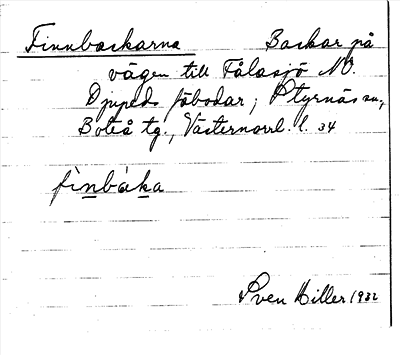 Finnbackarna Backar på
vägen till Fålasjö NO.
Djupeds fäbodar; Styrnäs sn,
Boteå tg., Västernorrl. l. 34
fìnbáka
Sven Hiller 1932